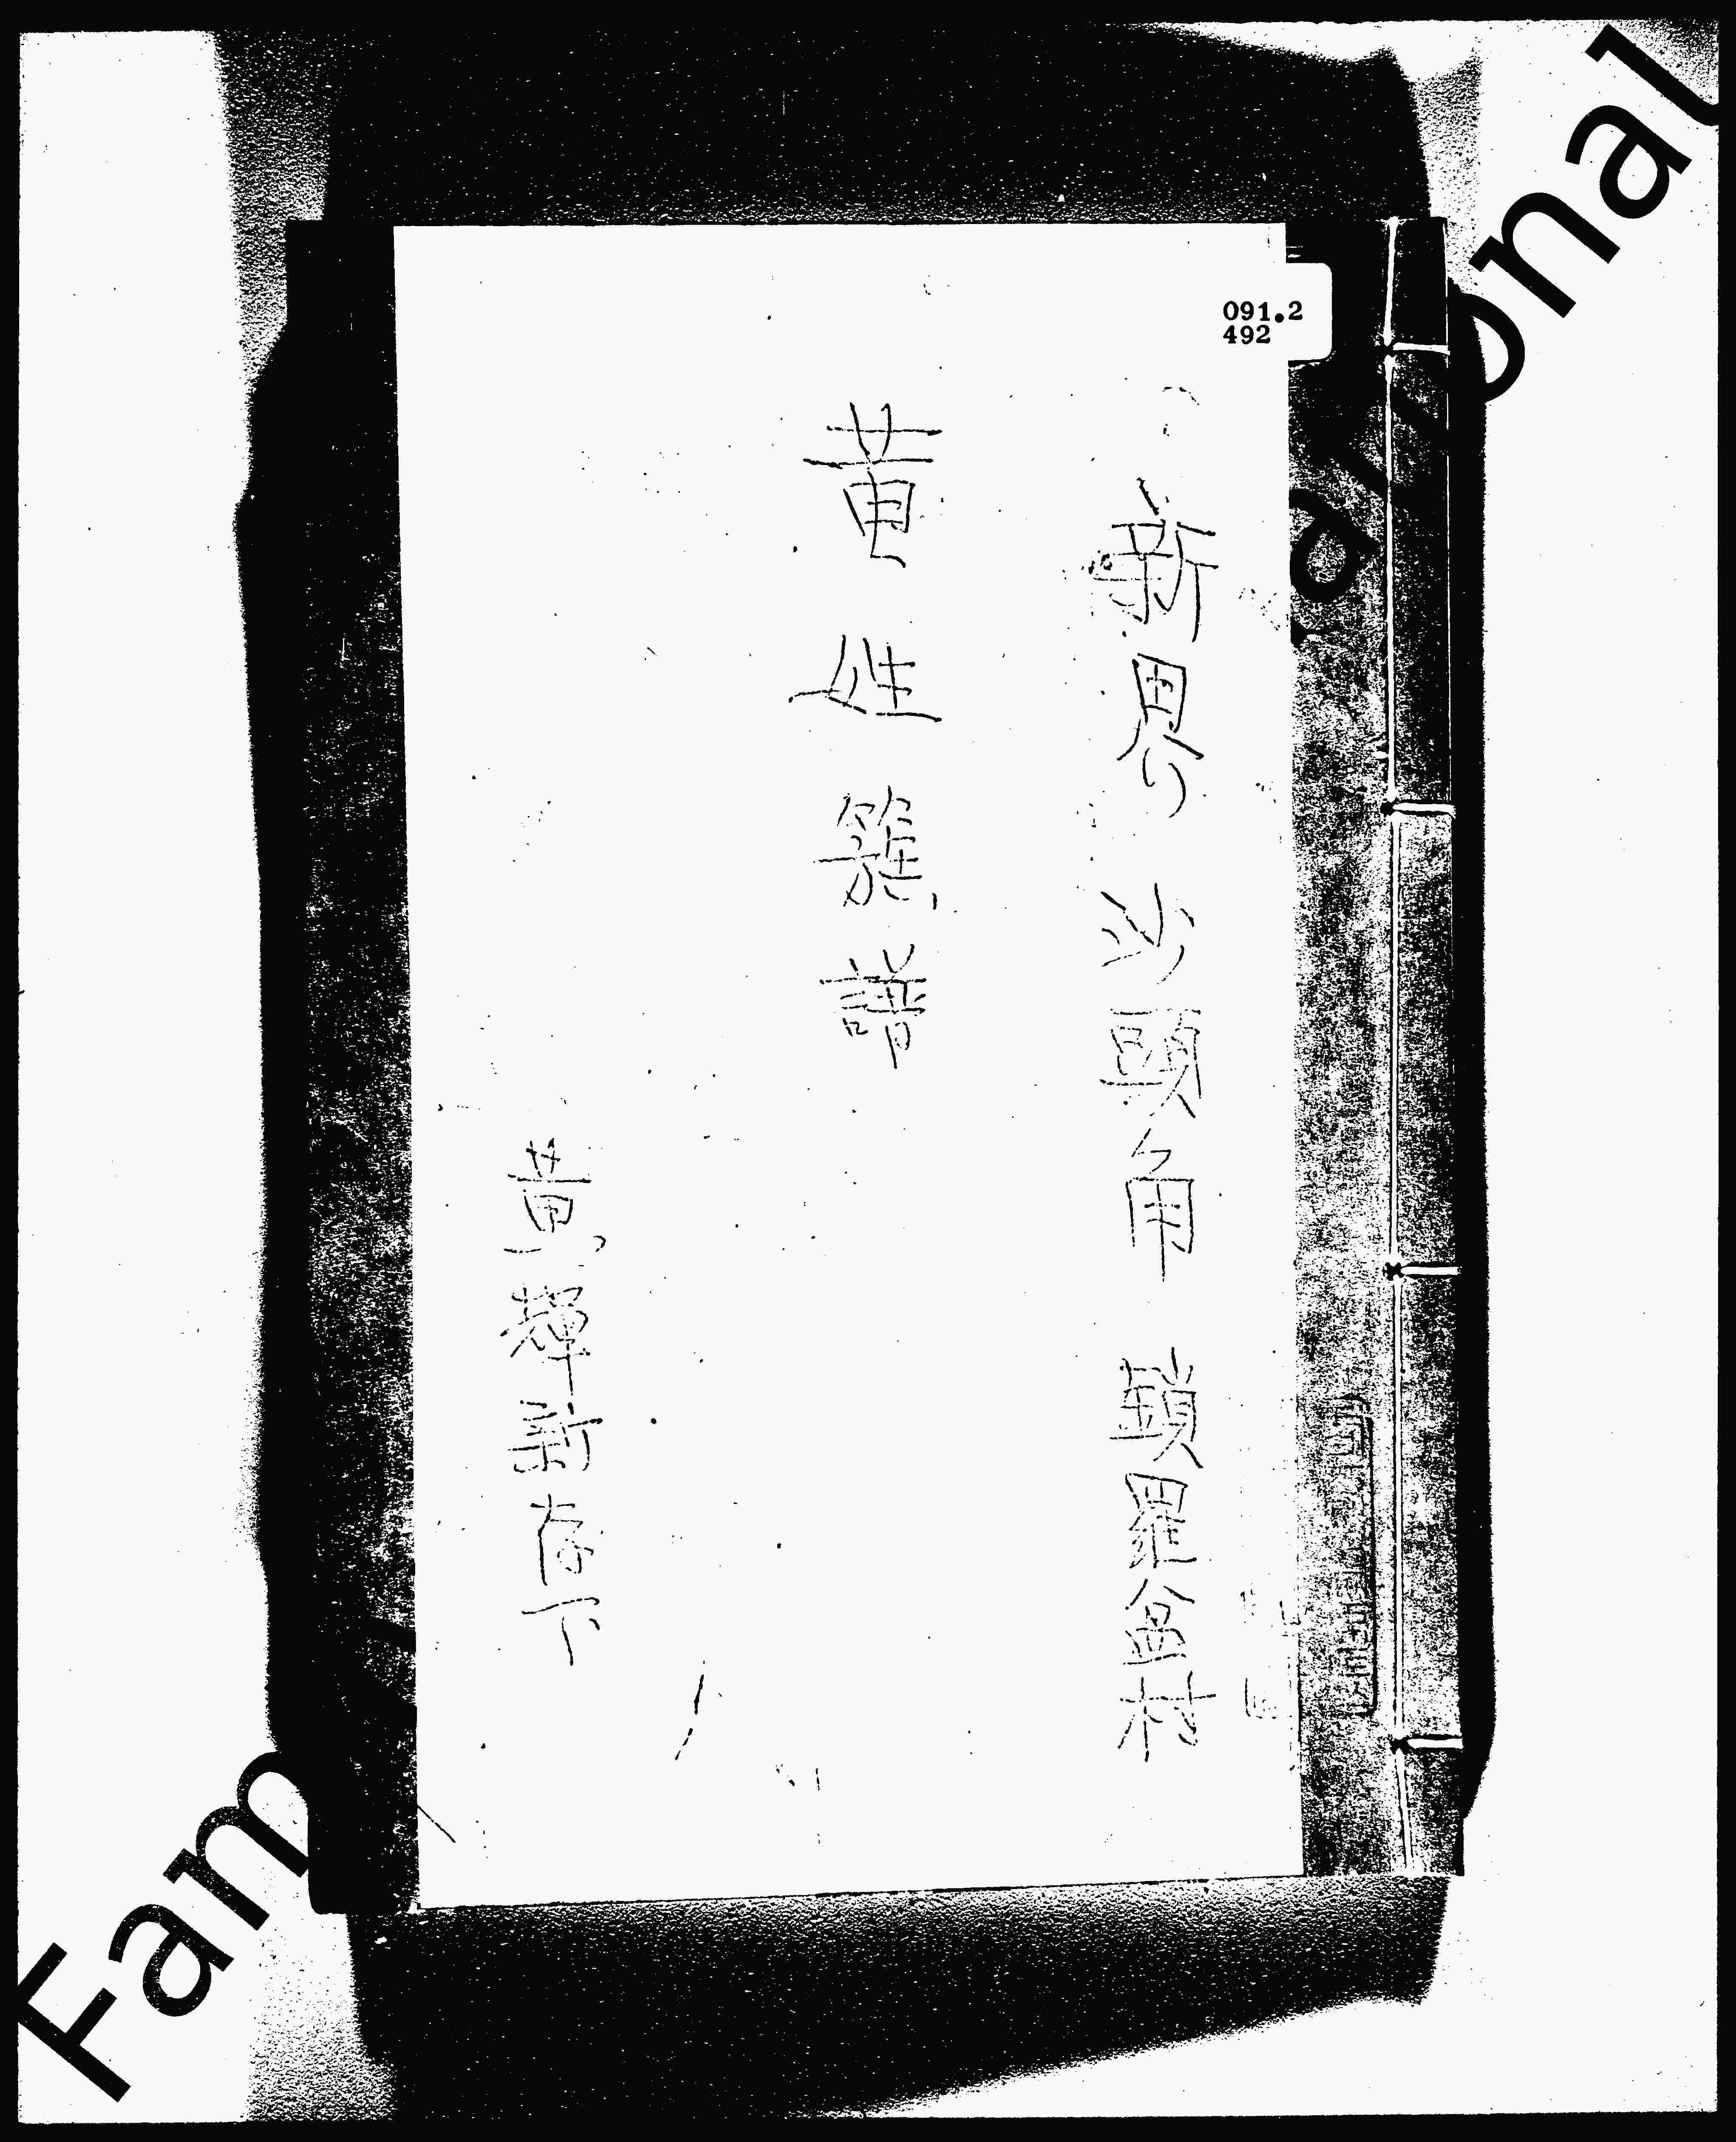 091.2
492
新界 沙頭角 鎖羅盆村
黃姓簇譜
黃輝新存下
Fam
onal